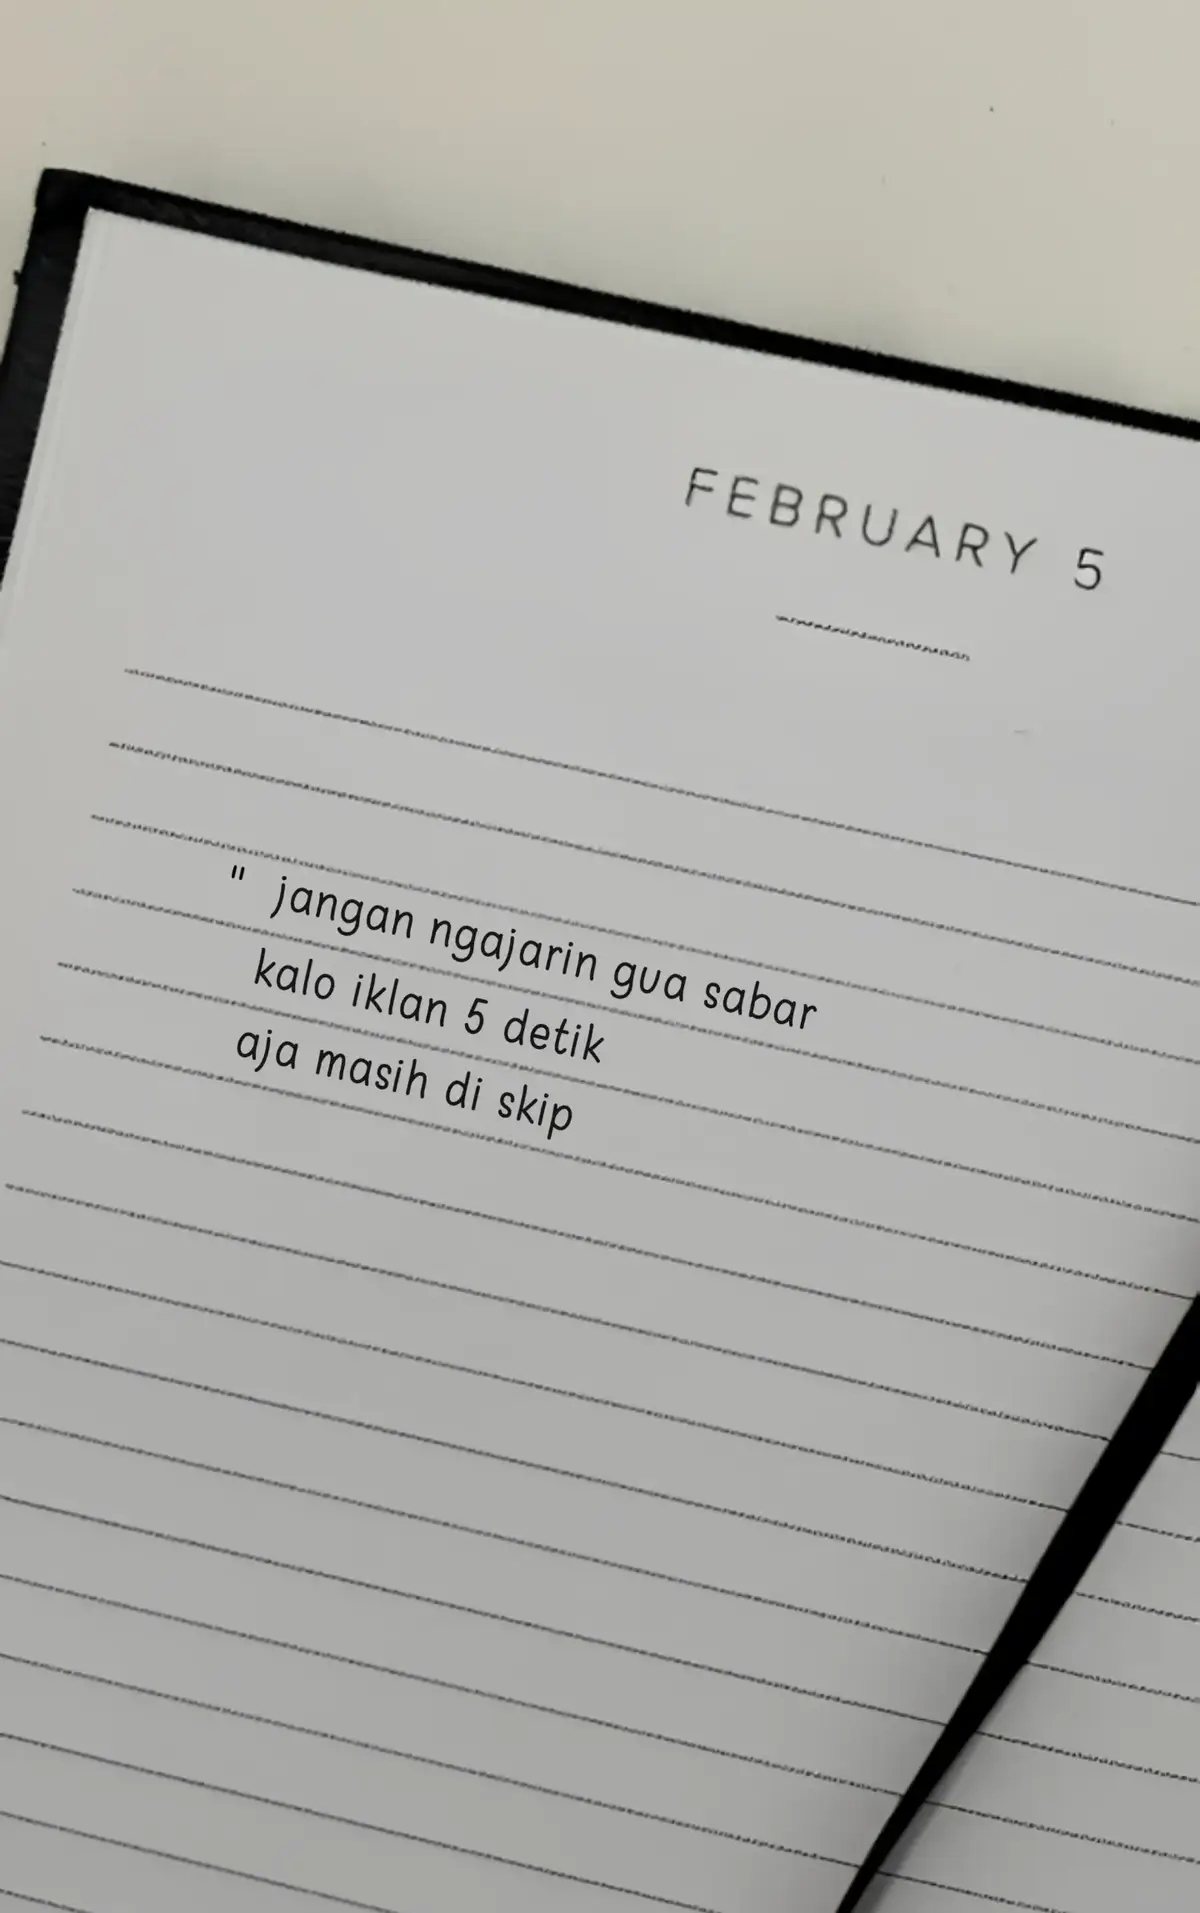 FEBRUARY 5
" jangan ngajarin gua sabar
kalo iklan 5 detik
aja masih di skip